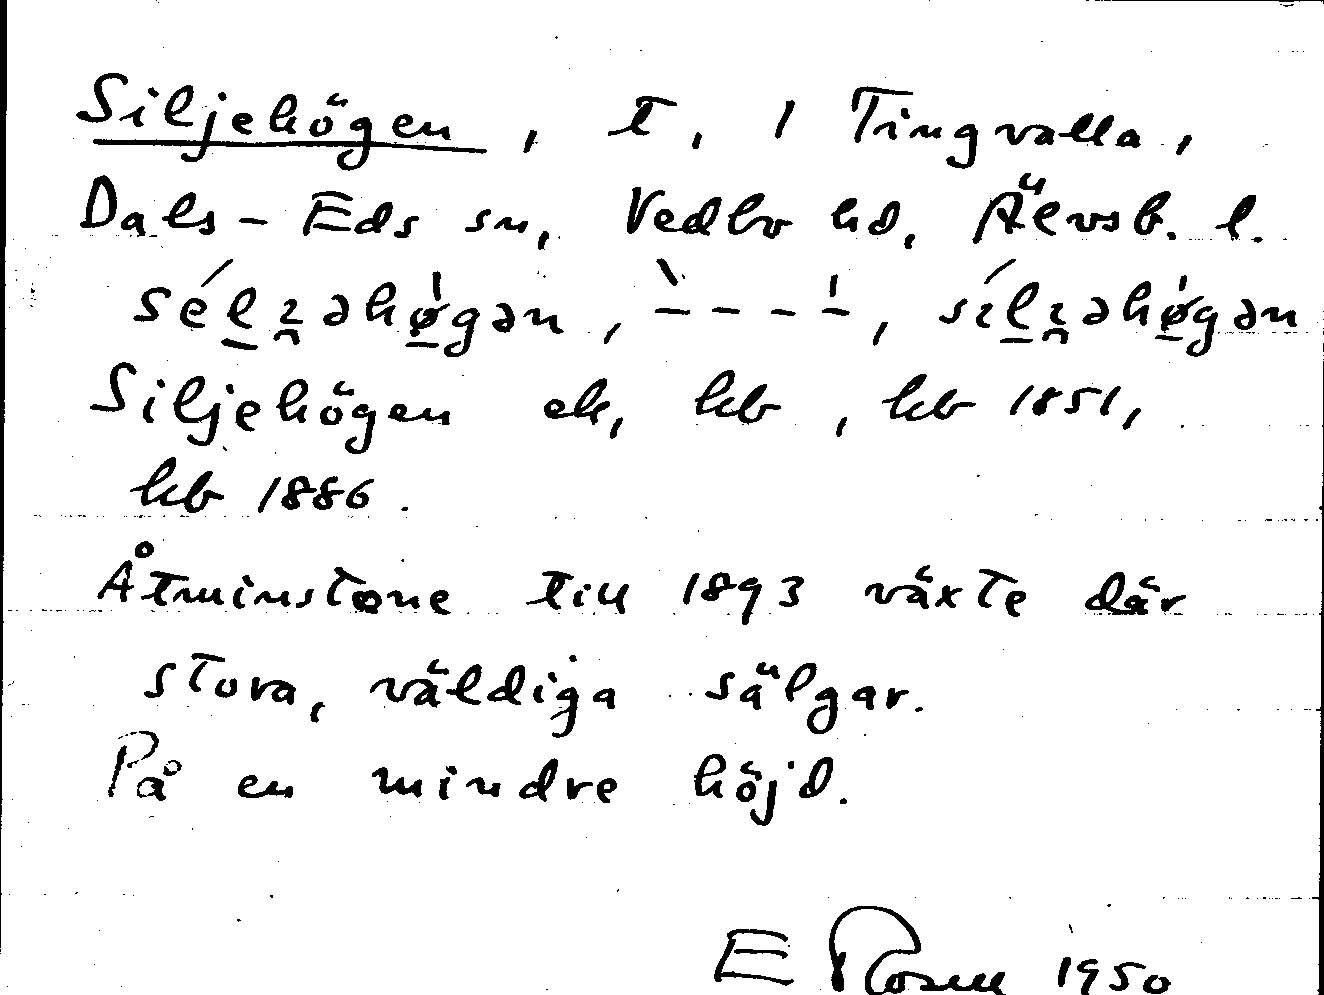 Siljehögen, t, 1 Tingvalla,
Dals-Eds sn, Vedbo hd, Älvsb. l.
Siljehögen ek, kb, kb 1851,
kb 1886.
Åtminstone till 1893 växte där
stora, väldiga sälgar.
På en mindre höjd.
E Rosell 1950